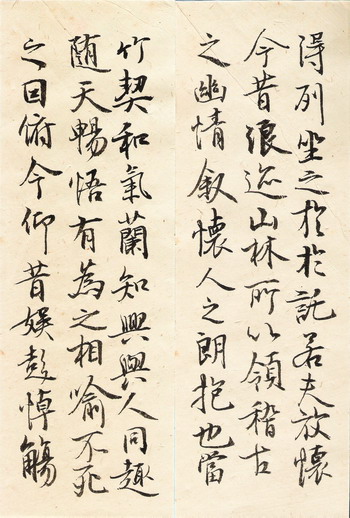 得列坐之於於託若夫放懷
今昔浪迹山林所以領稽古
之幽情叙懷人之朗抱也當
竹契和氣蘭知興與人同趣
随天暢悟有為之相喻不死
之因俯今仰昔娱彭悼觴